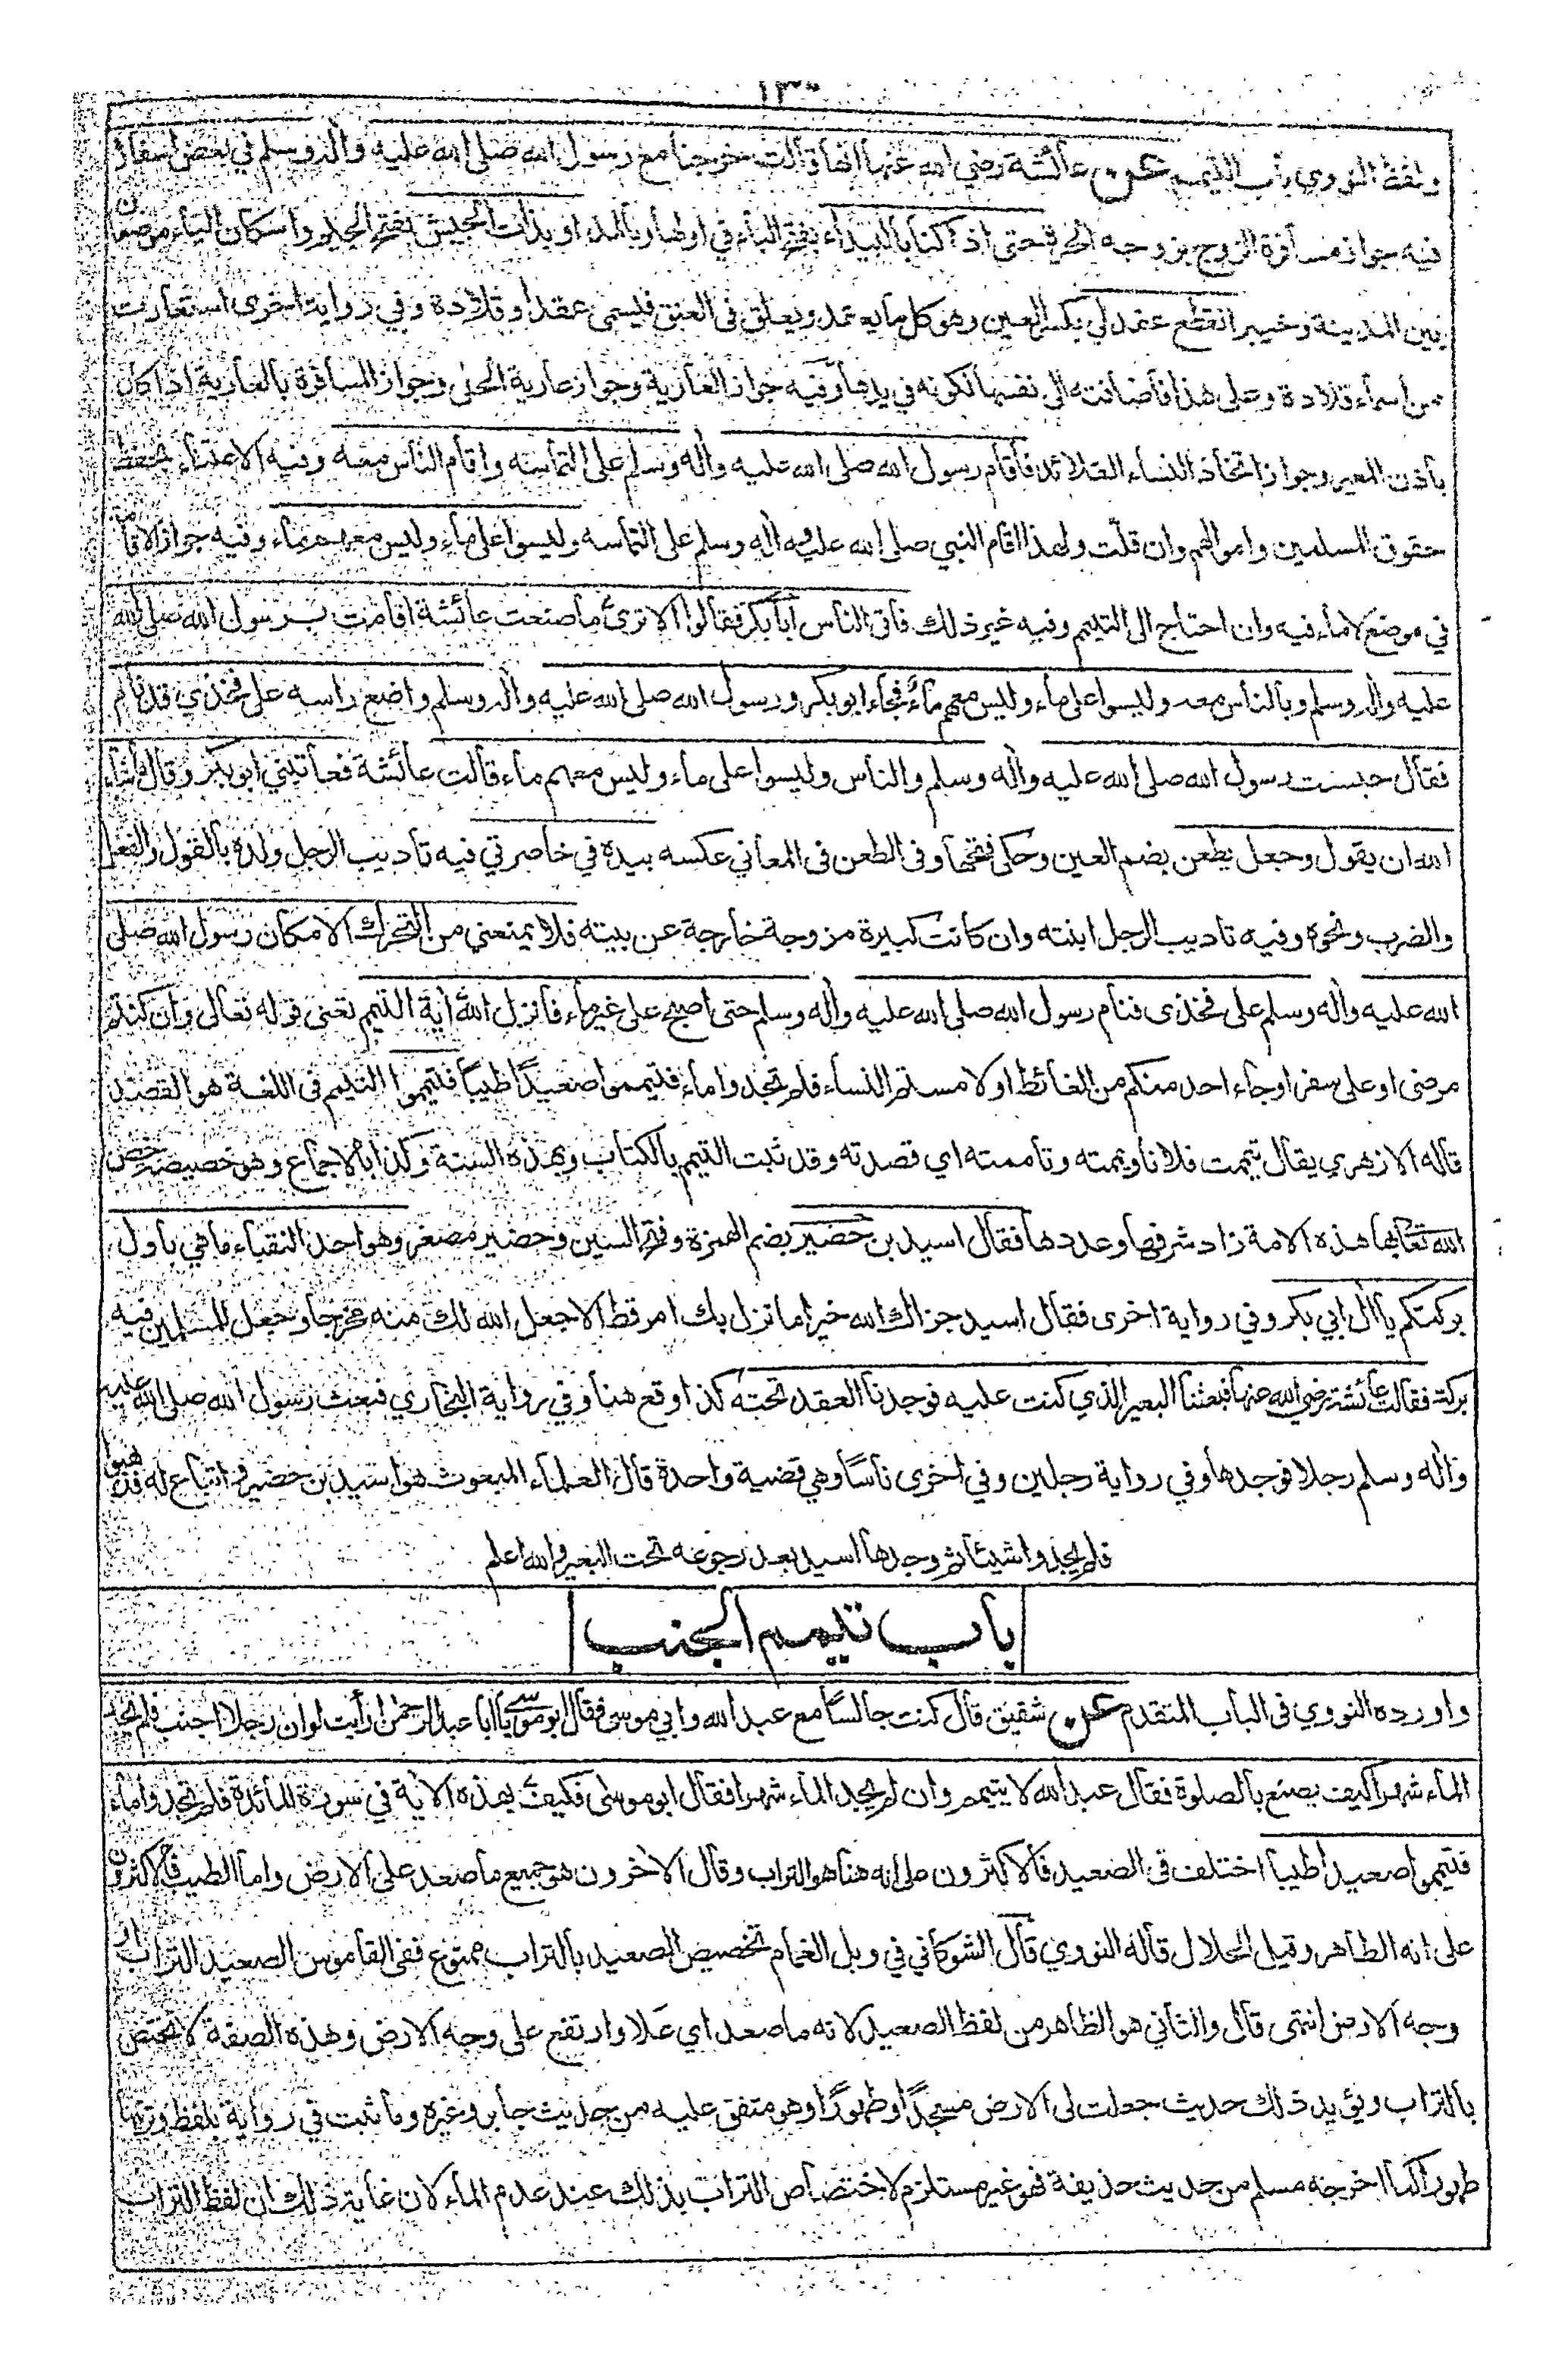 ١٣٠
ولفظ النووي باب التيمم عن عائشة رضي الله عنها انها قالت خرجنا مع رسول الله صلى الله عليه واله وسلم في بعض اسفاره
فيه جواز مسافرة الزوج بزوجه الحرة حتى اذا كنا بالبيداء بفتح الباء في اولها وبالمد او بذات الجيش بفتح الجيم واسكان الياء موضعان
بين المدينة وخيبر انقطع عقد لي بكسر العين وهو كل ما يعقد ويعلق في العنق فيسمى عقدا وقلادة وفي رواية اخرى استعارت
من أسماء قلادة وعلى هذا فأضافته الى نفسها لكونه في يدها وفيه جواز العارية وجواز عارية الحلى وجواز المسافرة بالعارية اذا كان
بأذن المعير وجواز اتخاذ النساء القلائد فأقام رسول الله صلى الله عليه واله وسلم على التماسه واقام الناس معه وفيه الاعتناء بحفظ
حقوق المسلمين واموالهم وان قلّت ولهذا اقام النبي صلى الله عليه واله وسلم على التماسه وليسوا على ماء وليس معهم ماء وفيه جواز الاقامة
في موضع لا ماء فيه وان احتاج الى التيمم وفيه غير ذلك فأتى الناس أبا بكر فقالوا الا ترى ما صنعت عائشة اقامت برسول الله صلى الله
عليه واله وسلم وبالناس معه وليسوا على ماء وليس معهم ماء فجاء ابو بكر ورسول الله صلى الله عليه واله وسلم واضع راسه على فخذي قد نام
فقال حبست رسول الله صلى الله عليه واله وسلم والناس وليسوا على ماء وليس معهم ماء قالت عائشة فعاتبني ابو بكر وقال ما شاء
الله ان يقول وجعل يطعن بضم العين وحكى فتحها وفي الطعن في المعاني عكسه بيده في خاصرتي فيه تأديب الرجل ولده بالقول والفعل
والضرب ونحوه وفيه تاديب الرجل ابنته وان كانت كبيرة مزوجة خارجة عن بيته فلا يمنعني من التحرك الا مكان رسول الله صلى
الله عليه واله وسلم على فخذي فنام رسول الله صلى الله عليه واله وسلم حتى اصبح على غير ماء فأنزل الله أية التيمم تعني قوله تعالى وان كنتم
مرضى او على سفر او جاء احد منكم من الغائط او لامستم النساء فلم تجدوا ماء فتيمموا صعيدًا طيبا فتيمموا التيمم في اللغة هو القصد
قاله الازهري يقال تيممت فلانا ويممته وتأممته اي قصدته وقد ثبت التيمم بالكتاب وبهذه السنة وكذا بالاجماع وهو خصيصة خص
الله تعالى بها هذه الامة زاد شرفها وعددها فقال اسيد بن حضير بضم الهمزة وفتح السين وحضير مصغر وهو احد النقباء ما هي باول
بركتكم يا ال ابي بكر وفي رواية اخرى فقال اسيد جزاك الله خيرا ما نزل بك امر قط الا جعل الله لك منه مخرجا وجعل للمسلمين فيه
بركة فقالت عائشة رضي الله عنها فبعثنا البعير الذي كنت عليه فوجدنا العقد تحته كذا وقع هنا وفي رواية البخاري فبعث رسول الله صلى الله عليه
واله وسلم رجلا فوجدها وفي رواية رجلين وفي اخرى ناسًا وهي قضية واحدة قال العلماء المبعوث هو اسيد بن حضير واتباع له فذهبوا
فلم يجدوا شيئا ثم وجدها اسيد بعد رجوعه تحت البعير والله اعلم
باب تيمم الجنب
واورده النووي في الباب المتقدم عن شقيق قال كنت جالسًا مع عبد الله وابي موسى فقال ابو موسى يا أبا عبد الرحمن ارأيت لو ان رجلا اجنب فلم يجد
الماء شهرا كيف يصنع بالصلوة فقال عبد الله لا يتيمم وان لم يجد الماء شهرا فقال ابو موسى فكيف بهذه الأية في سورة المائدة فلم تجدوا ماء
فتيمموا صعيدا طيبا اختلف في الصعيد فالاكثرون على انه هنا هو التراب وقال الاخرون هو جميع ما صعد على الارض واما الطيب فالاكثرون
على انه الطاهر وقيل الحلال قاله النووي قال الشوكاني في وبل الغمام تخصيص الصعيد بالتراب ممنوع ففي القاموس الصعيد التراب او
وجه الارض انتهى قال والثاني هو الظاهر من لفظ الصعيد لانه ما صعد اي علا وارتفع على وجه الارض وهذه الصفة لا تختص
بالتراب ويؤيد ذلك حديث جعلت لى الارض مسجدًا وطهورًا وهو متفق عليه من حديث جابر وغيره وما ثبت في رواية بلفظ وتربتها
طهورا كما اخرجه مسلم من حديث حذيفة فهو غير مستلزم لاختصاص التراب بذلك عند عدم الماء لان غاية ذلك ان لفظ التراب